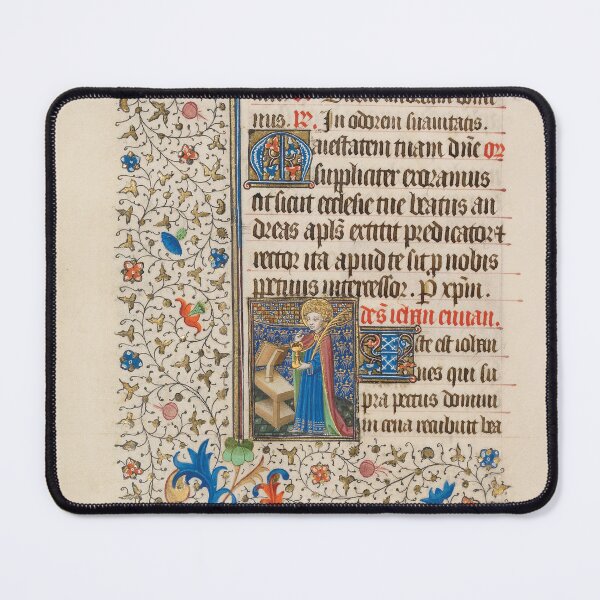 nus. In odorem suauitatis.
Maiestatem tuam dñe or
suppliciter exoramus
ut sicut ecclesie tue beatus an
dreas apl̄s extitit predicator ⁊
rector ita apud te sit ꝑ nobis
petuus intercessor. P xp̄m.
de s̄. iohan euuan.
Iste est iohan
nes qui su
pra pectus domini
in cena recubuit bea